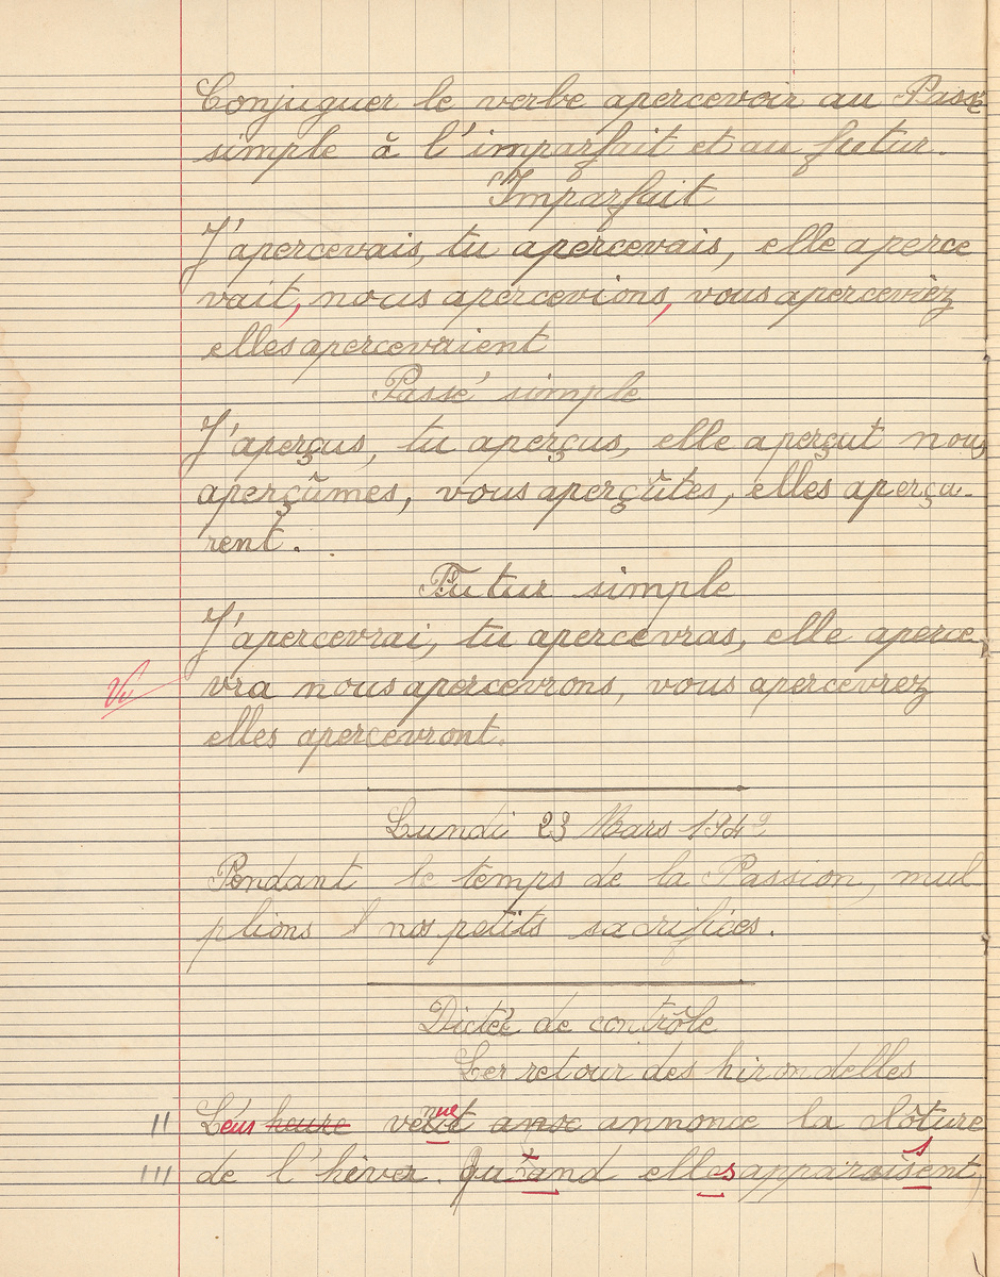 Conjuguer le verbe apercevoir au Passé
simple à l'imparfait et au futur.
Imparfait
J'apercevais, tu apercevais, elle aperce
vait, nous apercevions, vous aperceviez
elles apercevaient
Passé simple
J'aperçus, tu aperçus, elle aperçut nous
aperçûmes, vous aperçûtes, elles aperçu-
rent.
Futur simple
J'apercevrai, tu apercevras, elle aperce
Vu
vra nous apercevrons, vous apercevrez
elles apercevront.
Lundi 23 Mars 1942
Pendant le temps de la Passion, mul
plions nos petits sacrifices.
Dictée de contrôle
Ler retour des hirondelles
II Leur heure annonce la clôture
III de l'hiver. elles apparaissent